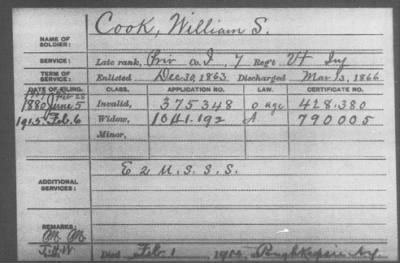 NAME OF SOLDIER: Cook, William S.
SERVICE: Late rank, Priv Co. I, 7 Reg't Vt Inf
TERM OF SERVICE: Enlisted Dec 30, 1863 Discharged Mar 13, 1866
DATE OF FILING. CLASS. APPLICATION NO. LAW. CERTIFICATE NO.
1880 June 5 Invalid, 375348 428.380
1915 Feb. 6 Widow, 1041.192 A 790005
Minor,
ADDITIONAL SERVICES: E 2 U.S.S.S.
REMARKS:
Died Feb 1 Poughkeepsie N.Y.